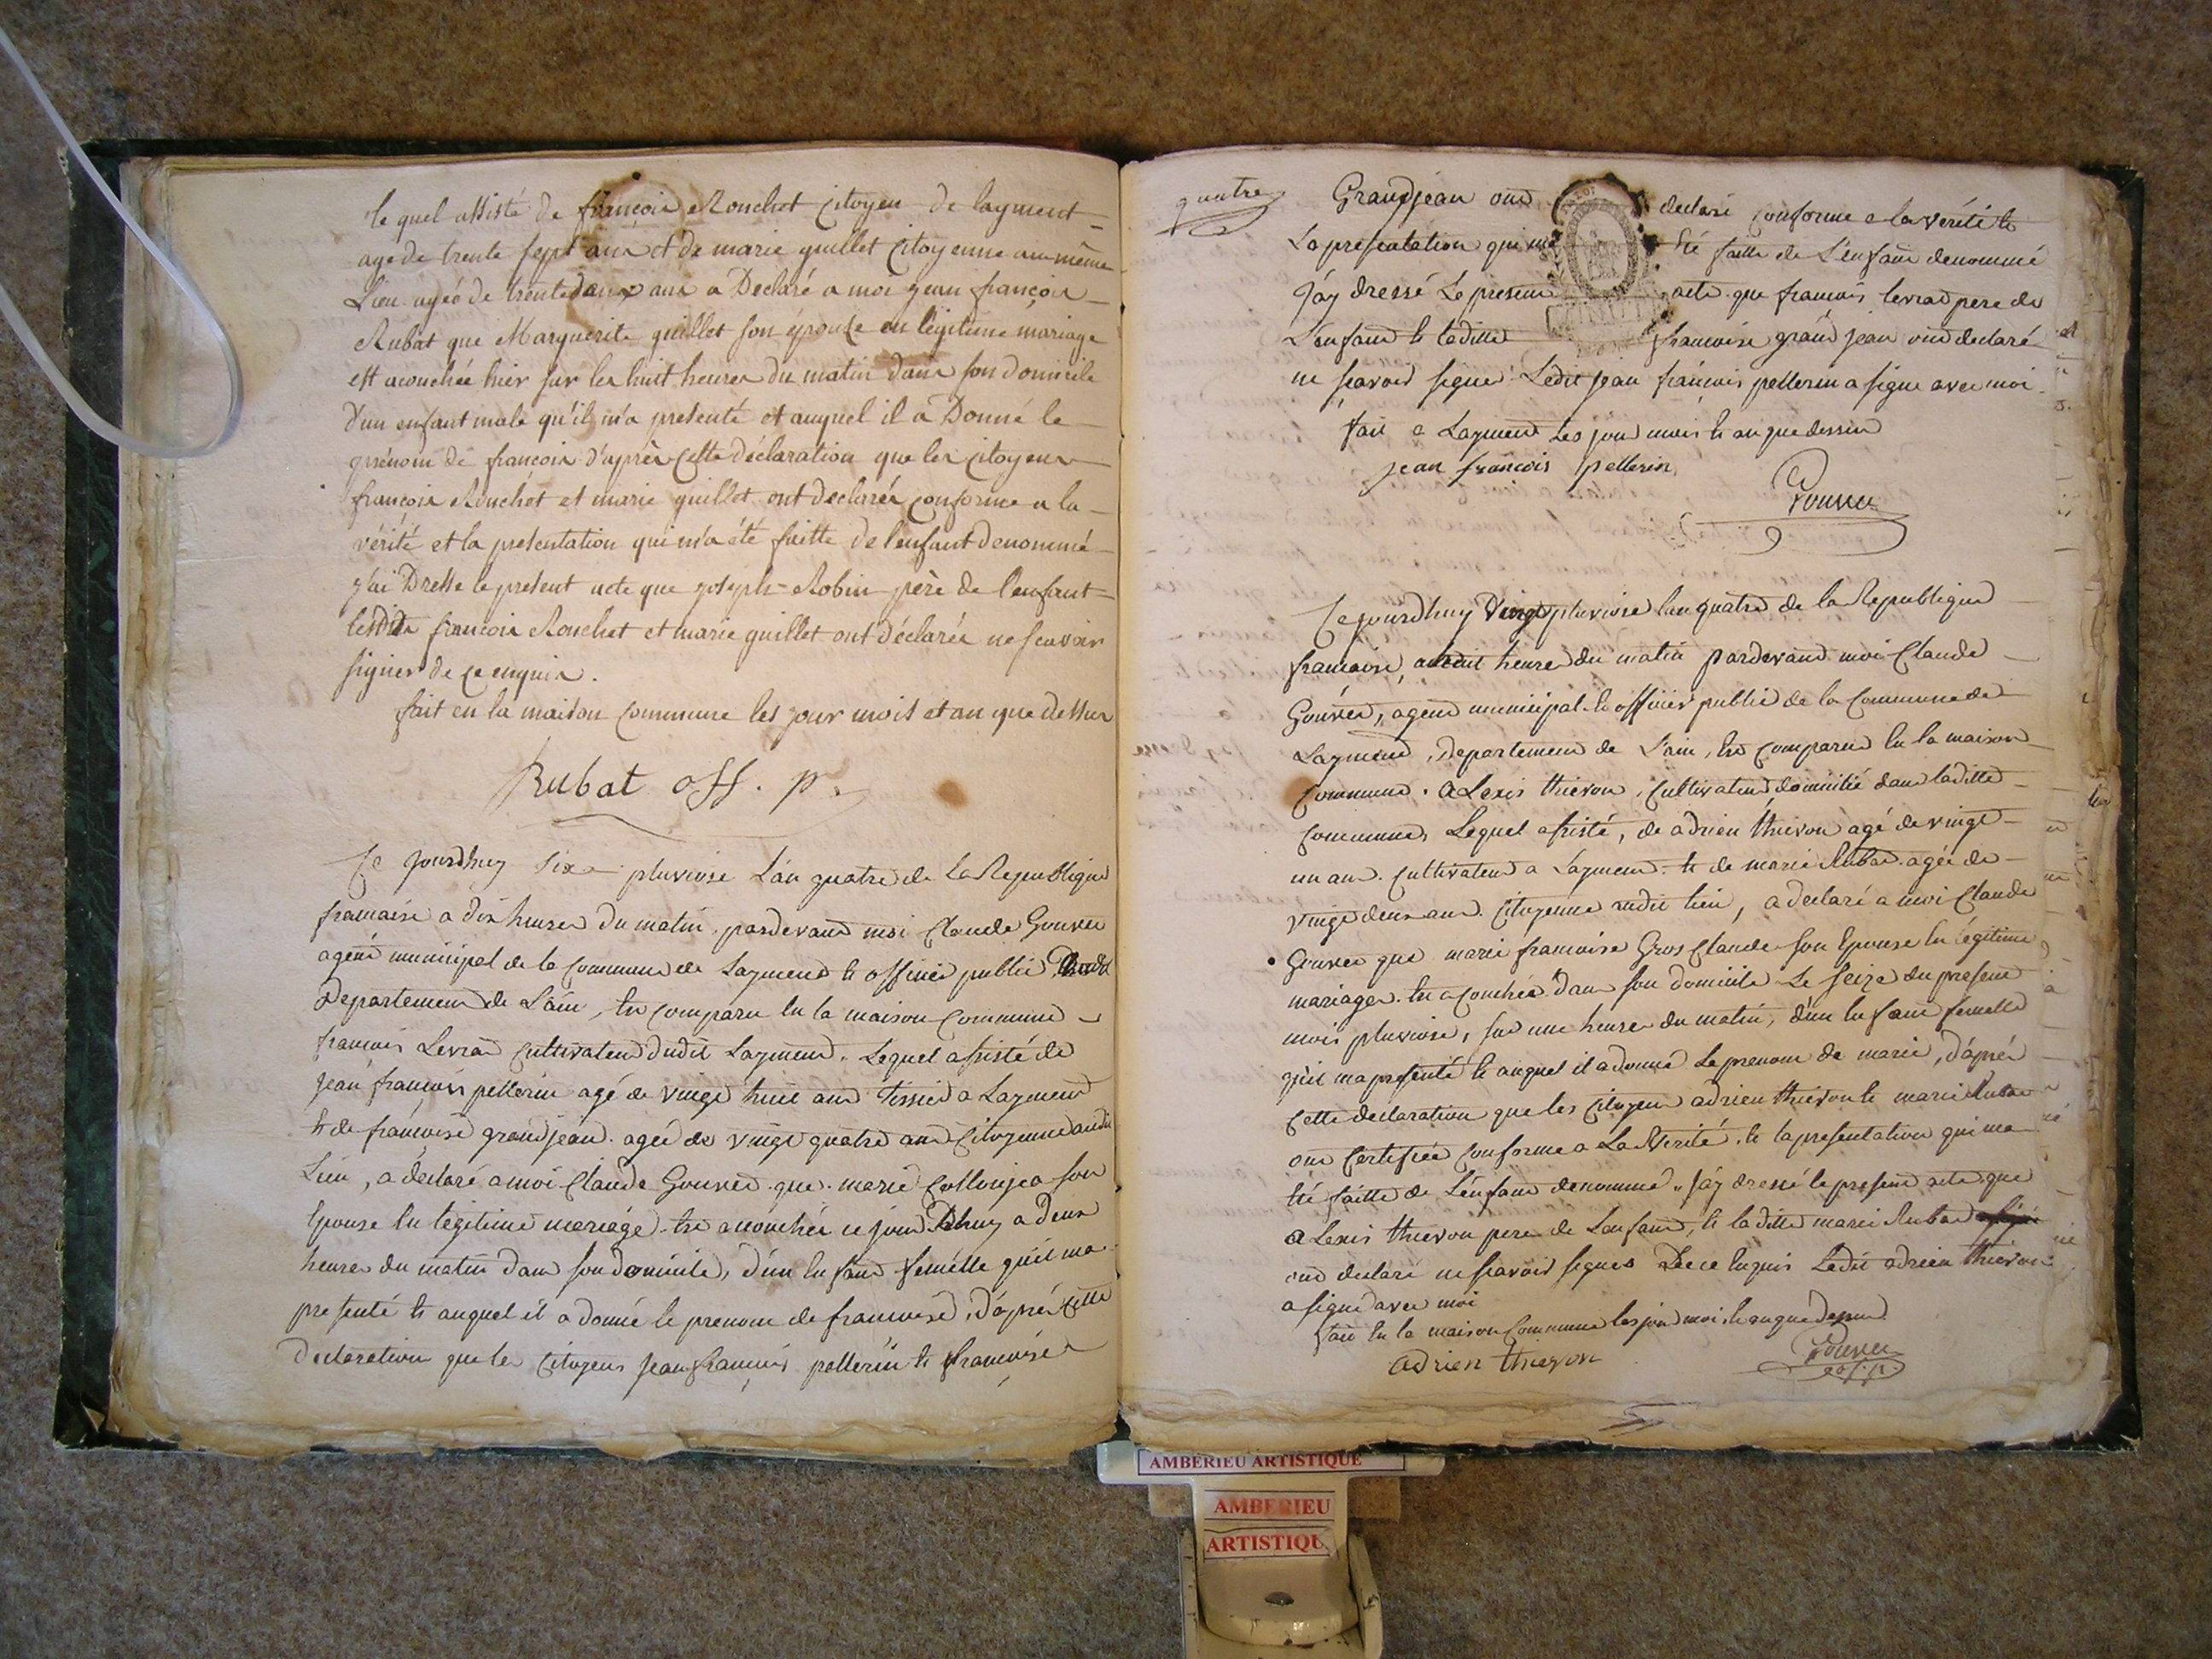 le quel assisté de françois Ronchet Citoyen de layment
age de trente sept ans et de marie guillet Citoyenne au même
Lieu agéé de trente deux ans a Declaré a moi jean françois
Rubat que Marguerite guillet son épouse en légitime mariage
est acouchée hier sur les huit heures du matin dans son domicile
d'un enfant male qu'il m'a presenté et auquel il a Donné le
prénom de francois d'après Cette déclaration que les Citoyens
françois Ronchet et marie guillet ont declarés conforme a la
vérité et la presentation qui m'a été faitte de l'enfant denommé
j'ai Dresse le present acte que joseph Robin père de l'enfant
lesdits francois Ronchet et marie guillet ont déclarés ne scavoir
signer de ce enquis.
fait en la maison commune les jour mois et an que dessus
Rubat off. p.
Ce jourdhuy six pluviose L'an quatre de La Republique
francaise a dix heures du matin. pardevant moi Claude Gouver
agent municipal de la Commune de Layment et officier public
Departement de L'ain, est comparu en la maison Commune
francois Levrat cultivateur dudit Layment. Lequel assisté de
jean francois pellerin agé de vingt huit ans tissier a Layment
et de françoise grandjean. agée de vingt quatre ans Citoyenne audit
Lieu, a declaré a moi Claude Gouver que marie Collonjea son
Epouse en legitime mariage est acouchée ce jourdhuy a deux
heures du matin dans son domicile, d'un enfant femelle qu'il ma
presenté et auquel il a donné le prenom de francoise, d'après Cette
Declaration que les Citoyens jean francois pellerin et francoise
quatre
Grandjean ont declaré conforme a la vérité et
La presentation qui ma été faitte de L'enfant denommé
J'ay dressé Le present acte que francois levrat pere de
L'enfant et laditte francoise grand jean ont declaré
ne scavoir signer Ledit jean francois pellerin a signe avec moi
fait a Layment Les jour mois et an que dessus
jean francois pellerin
Gouver
Ce jourdhuy Vingt pluviose lan quatre de la Republique
francaise, a huit heures du matin pardevant moi Claude
Gouver, agent municipal et officier public de la Commune de
Layment, departement de L'ain, est comparu en la maison
Commune. Alexis thievon, Cultivateur domicilié dans laditte
commune, Lequel assisté, de adrien thievon agé de vingt
un ans. Cultivateur a Layment et de marie Rubat agée de
vingt deux ans. Citoyenne audit lieu, a declaré a moi Claude
Gouver que marie francoise Gros Claude son Epouse en légitime
mariage. est acouchée dans son domicile Le seize du present
mois pluviose, sur une heure du matin, d'un enfant femelle
qu'il ma presenté et auquel il a donné Le prenom de marie, d'après
Cette declaration que les Citoyens adrien thievon et marie Rubat
ont Certifiée Conforme a La Verité. et la presentation qui ma
été faitte de L'enfant denommé, J'ay dressé le present acte que
alexis thievon pere de L'enfant, et laditte marie Rubat
ont declaré ne scavoir signer De ce Enquis Ledit adrien thievon
a signé avec moi
fait En la maison Commune les jour mois et an que dessus
adrien thievon
Gouver
of. p.
AMBERIEU ARTISTIQUE
AMBERIEU
ARTISTIQU